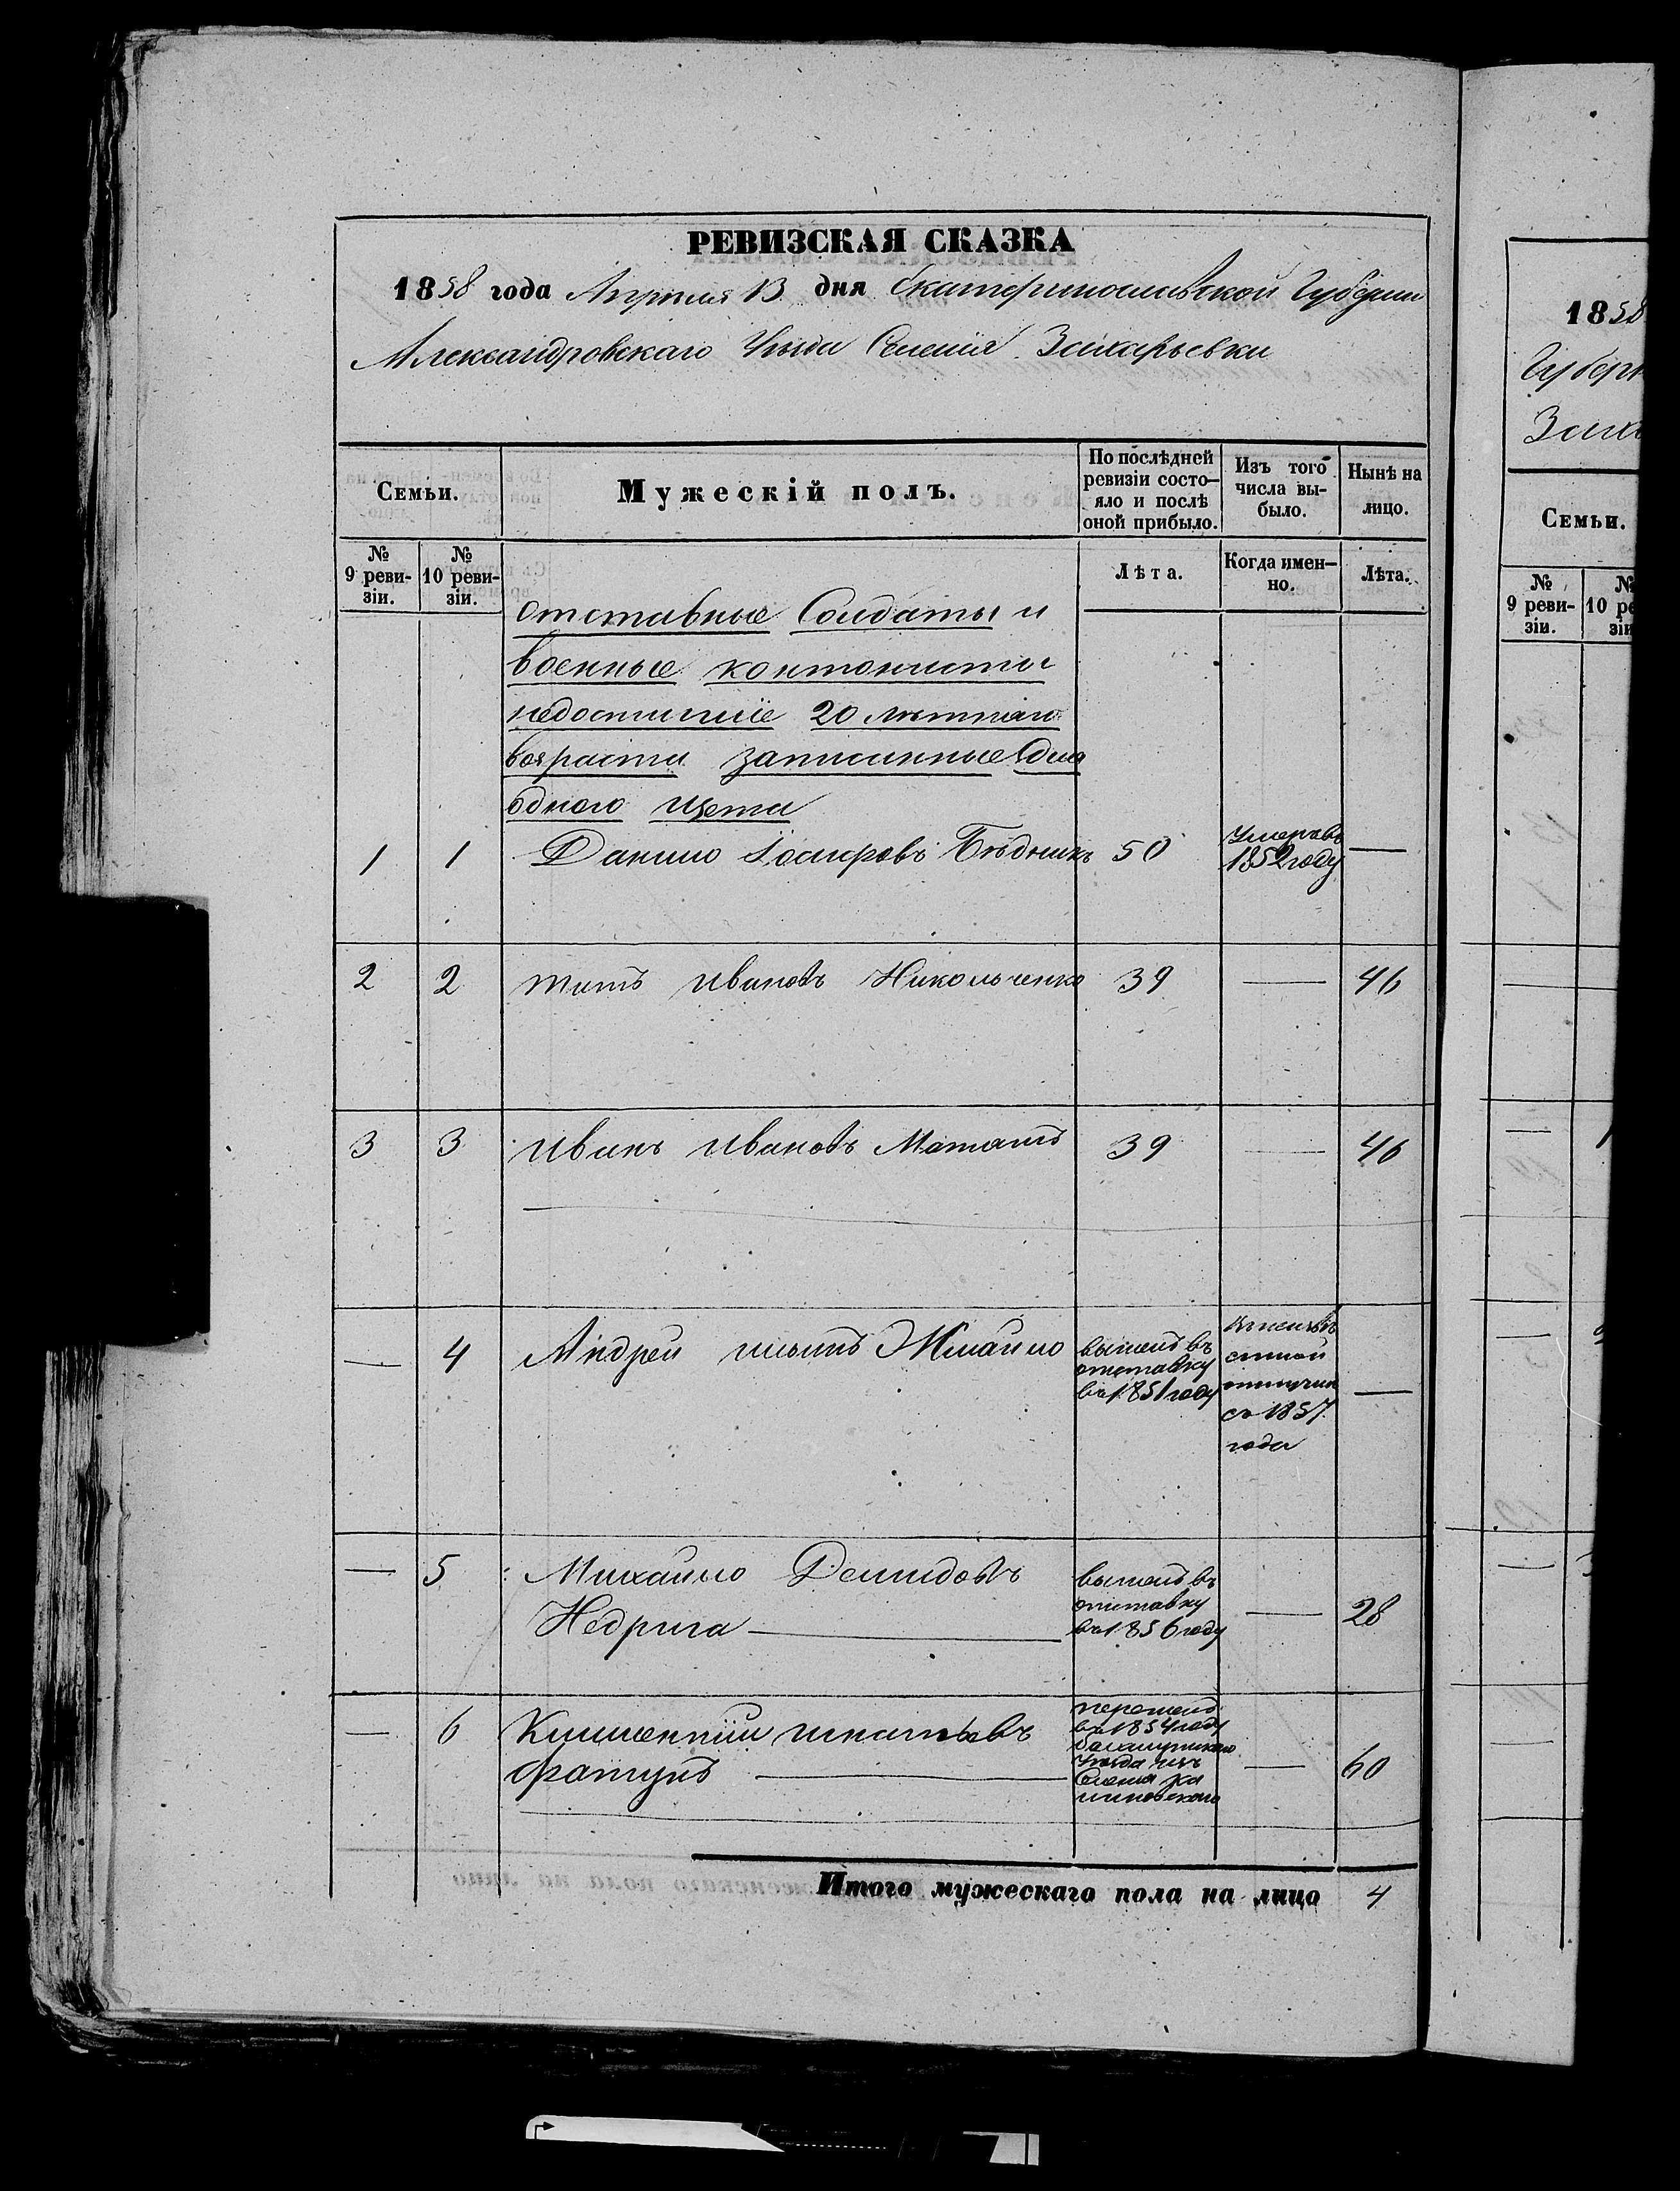 РЕВИЗСКАЯ СКАЗКА
1858 года Апреля 13 дня Екатеринославской Губернии
Александровскаго Уезда Селения Захарьевки
Семьи.
Мужескій полъ.
По послѣдней ревизіи состо-
яло и послѣ
оной прибыло.
Изъ того
числа вы-
было.
Нынѣ на
лицо.
№
9 реви-
зіи.
№
10 реви-
зіи.
Лѣта.
Когда имен-
но.
Лѣта.
отставные Солдаты и
военные контонисты
недостигшие 20 летняго
возраста записанные для
одного щета
1 1 Данило Бедникъ 50 Умеръ въ 1852 году —
2 2 титъ ивановъ Никольченко 39 — 46
3 3 иванъ ивановъ 39 — 46
— 4 Андрей ильинъ вышелъ въ
отставку
въ 1851 году
съ 1857
года
—
— 5 Михайло Демидовъ
Недрига
вышелъ въ
отставку
въ 1856 году
— 28
— 6 игнатьевъ
перешелъ
въ 1854 году
Уезда изъ
— 60
Итого мужескаго пола на лицо 4
1858
Губерн
Заха
Семьи.
№
9 реви-
зіи.
№
10 ре
зіи